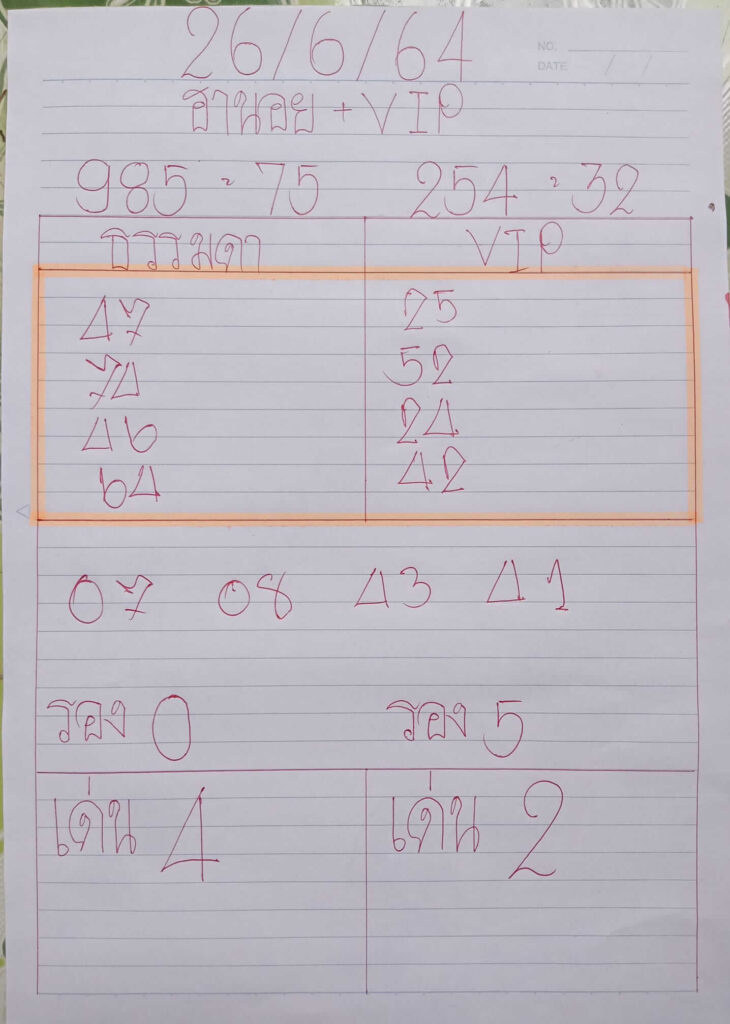 26/6/64
NO.
DATE / /
ฮานอย + VIP
985 - 75 254 - 32
ธรรมดา VIP
47 25
74 52
46 24
64 42
07 08 43 41
รอง 0 รอง 5
เด่น 4 เด่น 2